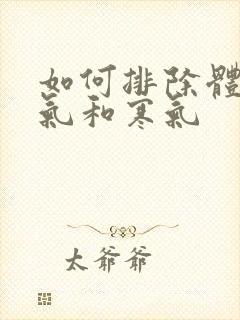 如何排除體
氣和寒氣
太爺爺